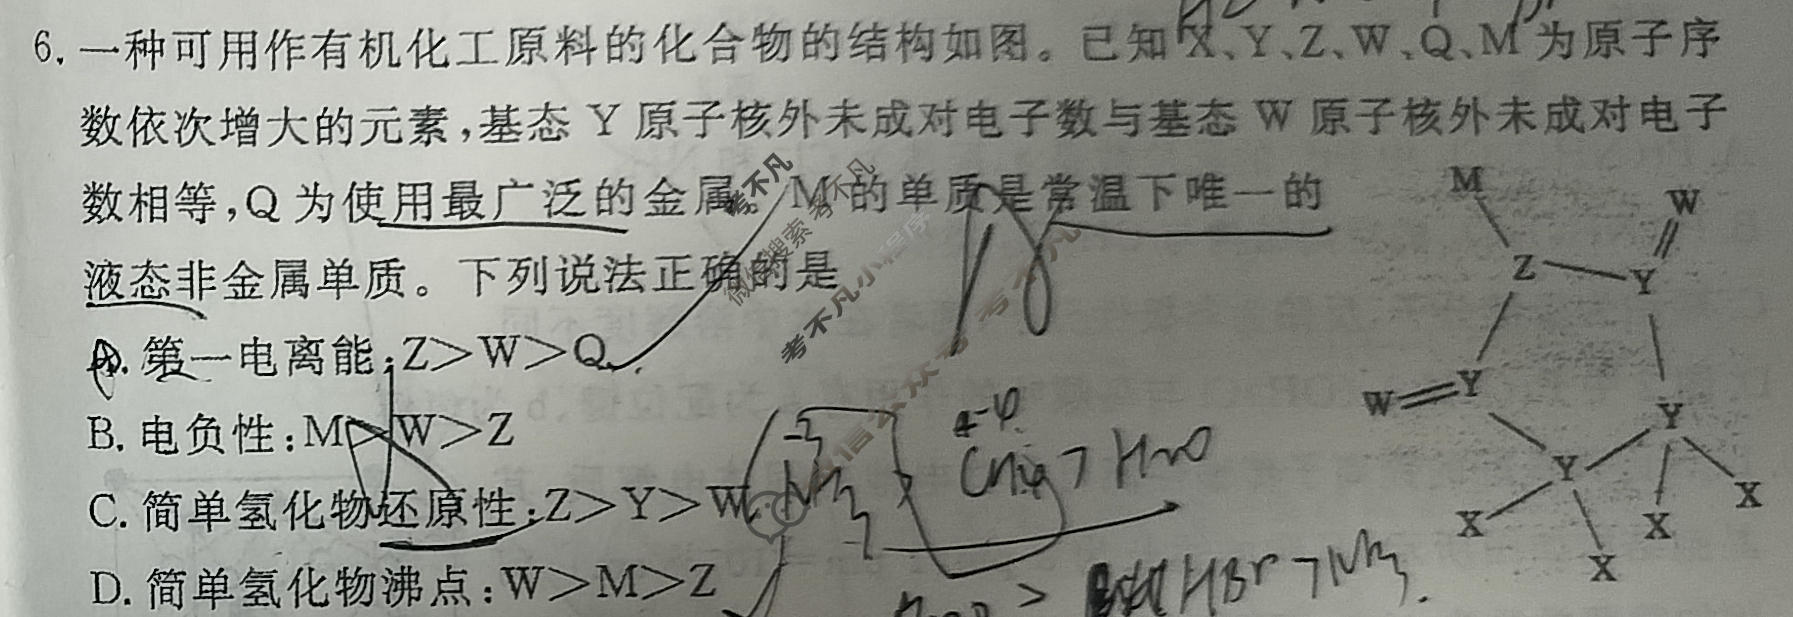 6. 一种可用作有机化工原料的化合物的结构如图。已知X、Y、Z、W、Q、M为原子序
数依次增大的元素,基态 Y 原子核外未成对电子数与基态 W 原子核外未成对电子
数相等,Q 为使用最广泛的金属。M 的单质是常温下唯一的
液态非金属单质。下列说法正确的是
A. 第一电离能:Z>W>Q
B. 电负性:M>W>Z
C. 简单氢化物还原性:Z>Y>W
D. 简单氢化物沸点:W>M>Z
M
W
Z
Y
W
Y
Y
Y
X
X
X
X
考不凡
微信搜索 考不凡
考不凡小程序
考不凡
NH3
-3
-4
CH4 > H2O
> HBr > NH3.